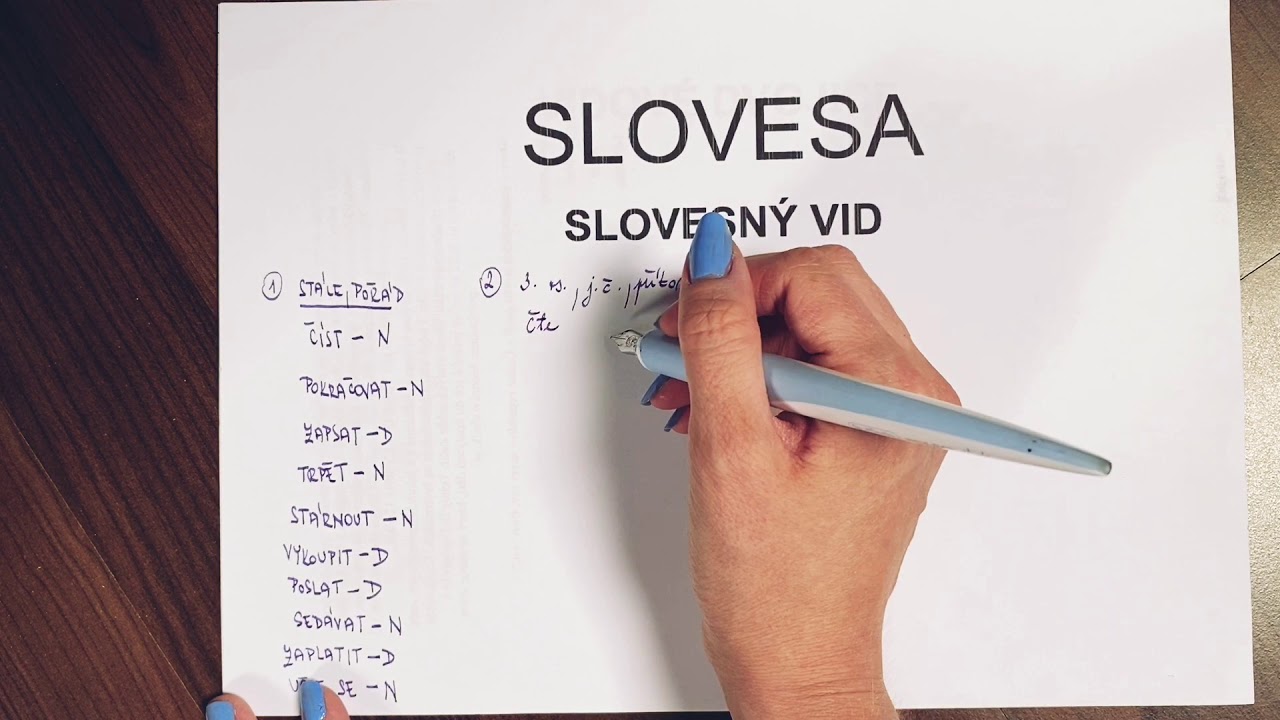 SLOVESA
SLOVESNÝ VID
1 STÁLE, POŘÁD
ČÍST - N
POKRAČOVAT - N
ZAPSAT - D
TRPĚT - N
STÁRNOUT - N
VYKOUPIT - D
POSLAT - D
SEDÁVAT - N
ZAPLATIT - D
SE - N
2 3. os., j.č.,
čte